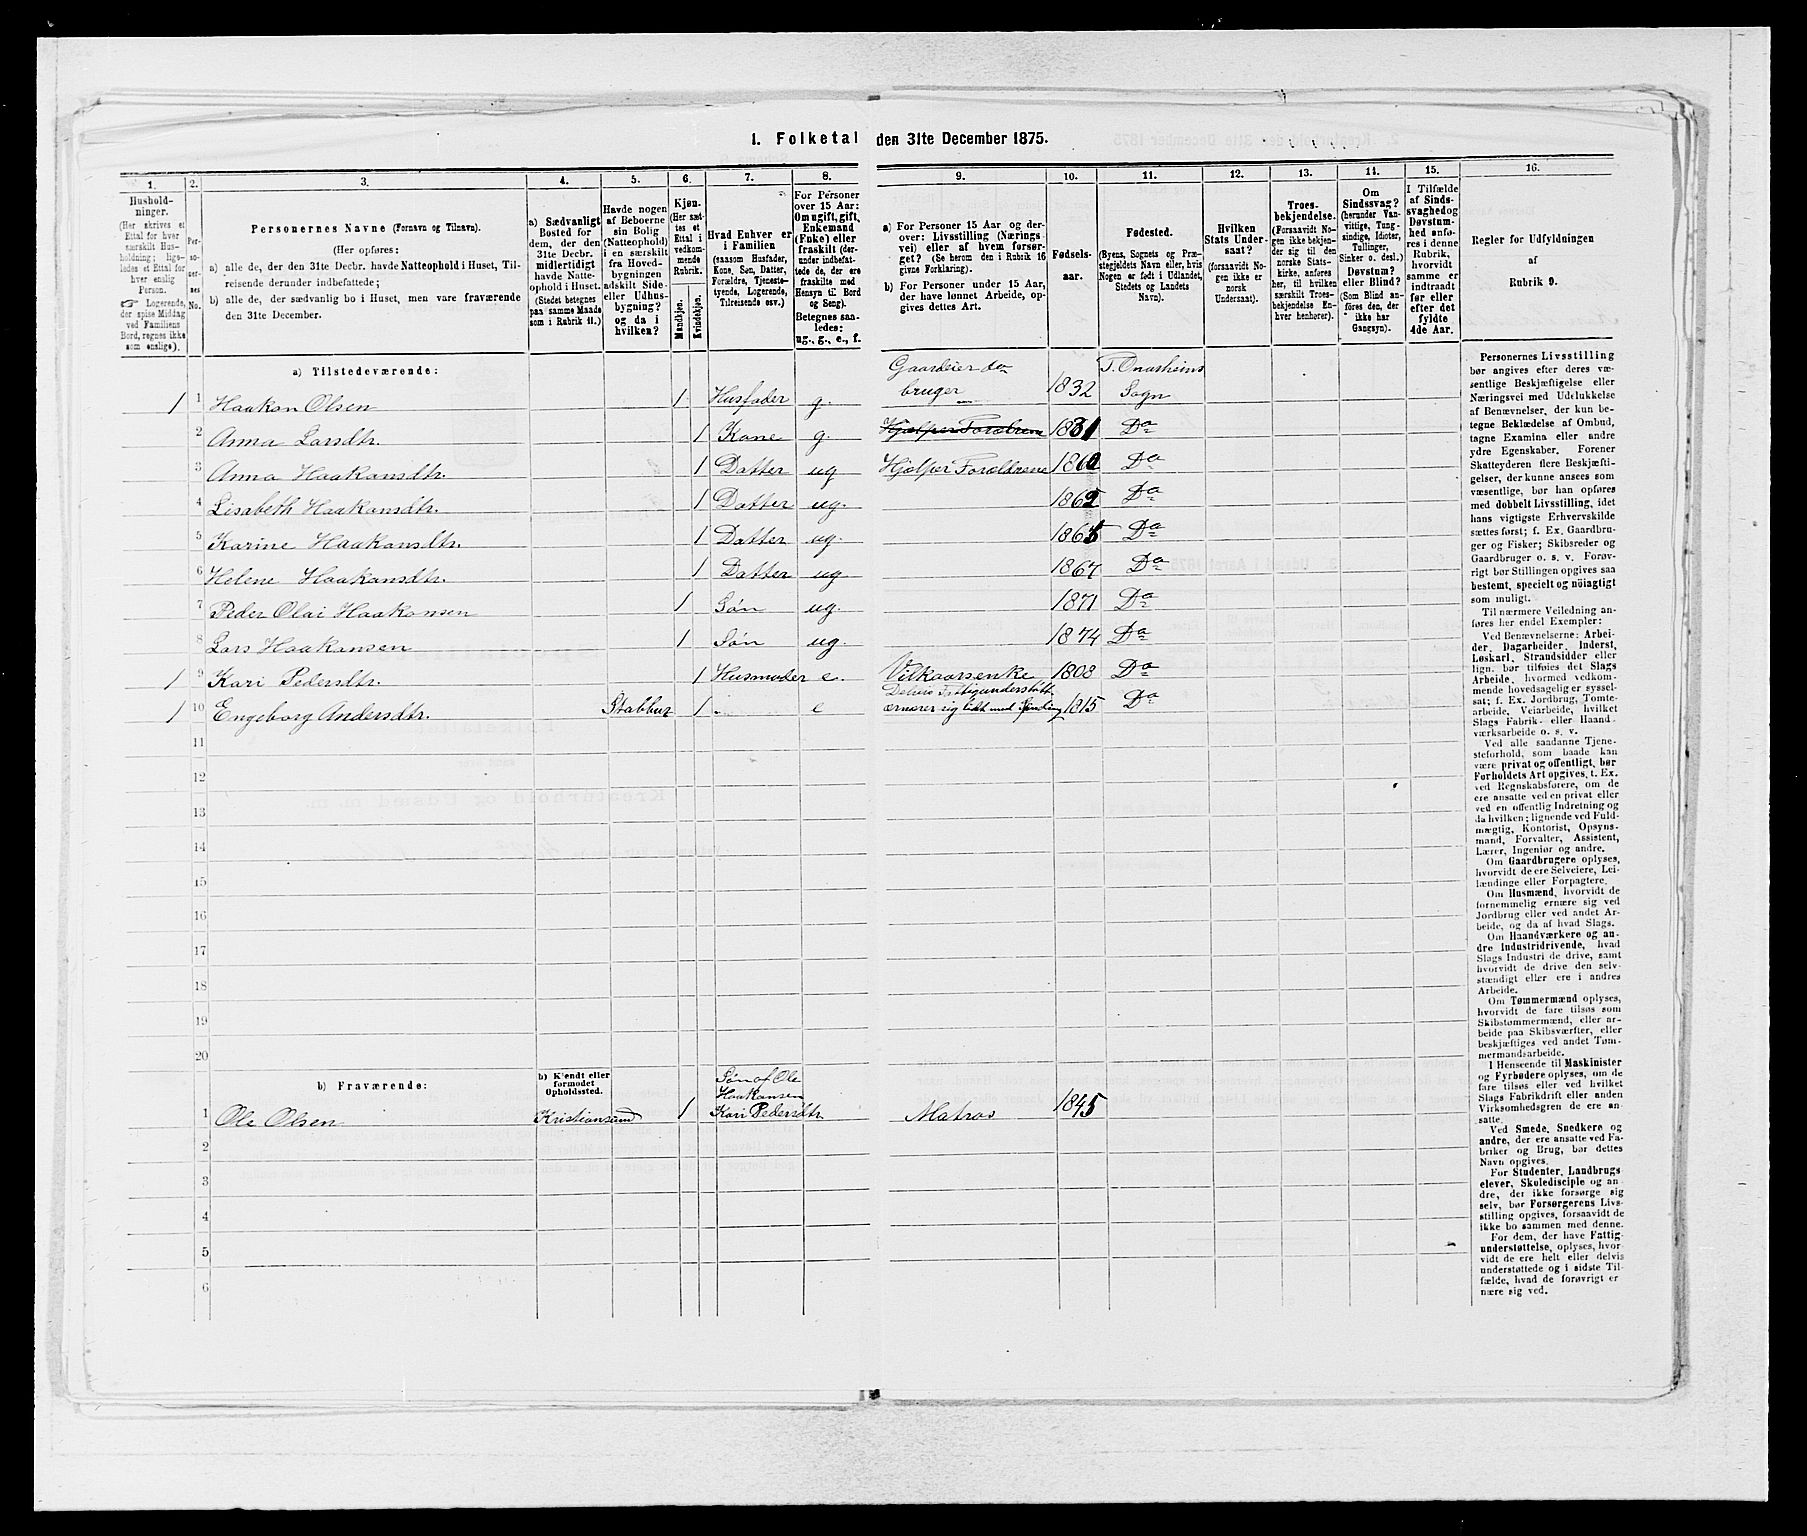 1. Folketal den 31te December 1875.
1. 2. 3. 4. 5. 6. 7. 8. 9. 10. 11. 12. 13. 14. 15. 16.
Hushold-
ninger.
(Her skrives et
Ettal for hver
særskilt Hus-
holdning; lige-
ledes et Ettal for
hver enslig
Person.
☞ Logerende,
der spise Middag
ved Familiens
Bord, regnes ikke
som enslige).
Per-
so-
ner-
nes
No.
Personernes Navne (Fornavn og Tilnavn).
(Her opføres:
a) alle de, der den 31te Decbr. havde Natteophold i Huset, Til-
reisende derunder indbefattede;
b) alle de, der sædvanlig bo i Huset, men vare fraværende
den 31te December.
a) Sædvanligt
Bosted for
dem, der den
31te Decbr.
midlertidigt
havde Natte-
ophold i Huset.
(Stedet betegnes
paa samme Maade
som i Rubrik 11.)
Havde nogen
af Beboerne
sin Bolig
(Natteophold)
i en særskilt
fra Hoved-
bygningen
adskilt Side-
eller Udhus-
bygning?
og da i
hvilken?
Kjøn.
(Her sæt-
tes et
Ettal i
vedkom-
mende
Rubrik.
Mandkjøn.
Kvindekjøn.
Hvad Enhver er
i Familien
(saasom Husfader,
Kone, Søn, Datter,
Forældre, Tjeneste-
tyende, Logerende,
Tilreisende osv.)
For Personer
over 15 Aar:
Om ugift, gift,
Enkemand
(Enke) eller
fraskilt (der-
under indbefat-
tede de, der ere
fraskilte med
Hensyn til Bord
og Seng).
Betegnes saa-
ledes:
ug., g., e., f.
a) For Personer 15 Aar og der-
over: Livsstilling (Nærings-
vei) eller af hvem forsør-
get? (Se herom den i Rubrik 16
givne Forklaring).
b) For Personer under 15 Aar,
der have lønnet Arbeide, op-
gives dettes Art.
Fødsels-
aar.
Fødested.
(Byens, Sognets og Præ-
stegjeldets Navn eller, hvis
Nogen er født i Udlandet,
Stedets og Landets
Navn).
Hvilken
Stats Under-
saat?
(forsaavidt No-
gen ikke er
norsk
Undersaat).
Troes-
bekjendelse.
(Forsaavidt No-
gen ikke bekjen-
der sig til den
norske Stats-
kirke, anføres
her, til hvilken
særskilt Troes-
bekjendelse En-
hver henhører).
Om
Sindssvag?
(herunder Van-
vittige, Tung-
sindige, Idioter,
Tullinger,
Sinker o. desl.)
Døvstum?
eller Blind?
(Som Blind an-
føres den, der
ikke har
Gangsyn).
I Tilfælde
af Sinds-
svaghed og
Døvstum-
hed anfø-
res i denne
Rubrik,
hvorvidt
samme er
indtraadt
før eller
efter det
fyldte
4de Aar.
Regler for Udfyldningen
af
Rubrik 9.
a) Tilstedeværende:
1 1 Haakon Olsen 1. Husfader g. Gaardeier bruger 1832 Sogn
2 Anna Larsdtr. 1 Kone g. Hjælper Forældrene 1831 Do
3 Anna Haakansdtr. 1 Datter ug Hjælper Forældrene 1860 Do
4 Lisabeth Haakansdtr. 1 Datter ug. 1862 Do
5 Karine Haakansdtr. 1 Datter ug. 1865 Do
6 Helene Haakansdtr. 1 Datter ug 1867 Do
7 Peder Olai Haakansen 1 Søn ug. 1871 Do
8 Lars Haakansen 1 Søn ug. 1874 Do
1 9 Kari Pedersdtr. 1 Husmoder e. Vilkaarsenke 1808 Do
1 10 Engeborg Andersdtr. Stabbur 1 e Delvis Fattigunderstøtt. ernærer sig lidt med Spinding 1815 Do
11
12
13
14
15
16
17
18
19
20
b) Fraværende:
b) Kjendt eller
formodet
Opholdssted.
1 Ole Olsen Kristiansund 1 Søn af Ole Haakansen Kari Pedersdtr. Matros 1845
2
3
4
5
6
Personernes Livsstilling
bør angives efter deres væ-
sentlige Beskjæftigelse eller
Næringsvei med Udelukkelse
af Benævnelser, der kun be-
tegne Beklædelse af Ombud,
tagne Examina eller andre
ydre Egenskaber. Forener
Skatteyderen flere Beskjæfti-
gelser, der kunne ansees som
væsentlige, bør han opføres
med dobbelt Livsstilling, idet
hans vigtigste Erhvervskilde
sættes først; f. Ex. Gaardbru-
ger og Fisker; Skibsreder og
Gaardbruger o. s. v. Forøv-
rigt bør Stillingen opgives saa
bestemt, specielt og nøiagtigt
som muligt.
Til nærmere Veiledning an-
føres her endel Exempler:
Ved Benævnelserne: Arbei-
der, Dagarbeider, Inderst,
Løskarl, Strandsidder eller
lign. bør tilføies det Slags
Arbeide, hvormed vedkom-
mende hovedsagelig er syssel-
sat; f. Ex. Jordbrug, Tomte-
arbeide, Veiarbeide, hvilket
Slags Fabrik- eller Haand-
værksarbeide o. s. v.
Ved alle saadanne Tjene-
steforhold, som baade kan
være privat og offentligt, bør
Forholdets Art opgives, t. Ex.
ved Regnskabsførere, om de
ere ansatte ved en privat eller
ved en offentlig Indretning og
da hvilken; lignende ved Fuld-
mægtig, Kontorist, Opsyns-
mand, Forvalter, Assistent,
Lærer, Ingeniør og andre.
Om Gaardbrugere oplyses,
hvorvidt de ere Selveiere, Lei-
lændinge eller Forpagtere.
Om Husmænd, hvorvidt de
fornemmelig ernære sig ved
Jordbrug eller ved andet Ar-
beide, og da af hvad Slags.
Om Haandværkere og an-
dre Industridrivende, hvad
Slags Industri de drive, samt
hvorvidt de drive den selv-
stændigt eller ere i andres
Arbeide.
Om Tømmermænd oplyses,
hvorvidt de fare tilsøs som
Skibstømmermænd, eller ar-
beide paa Skibsværfter, eller
beskjæftiges ved andet Tøm-
mermandsarbeide.
I Henseende til Maskinister
og Fyrbødere oplyses, om de
fare tilsøs eller ved hvilket
Slags Fabrikdrift eller anden
Virksomhedsgren de ere an-
satte.
Ved Smede, Snedkere og
andre, der ere ansatte ved Fa-
briker og Brug, bør dettes
Navn opgives.
For Studenter, Landbrugs-
elever, Skoledisciple og an-
dre, der ikke forsørge sig
selv, bør Forsørgerens Livs-
stilling opgives, forsaavidt de
ikke bo sammen med denne.
For dem, der have Fattig-
understøttelse, oplyses, hvor-
vidt de ere helt eller delvis
understøttede og i sidste Til-
fælde, hvad de forøvrigt er-
nære sig ved.